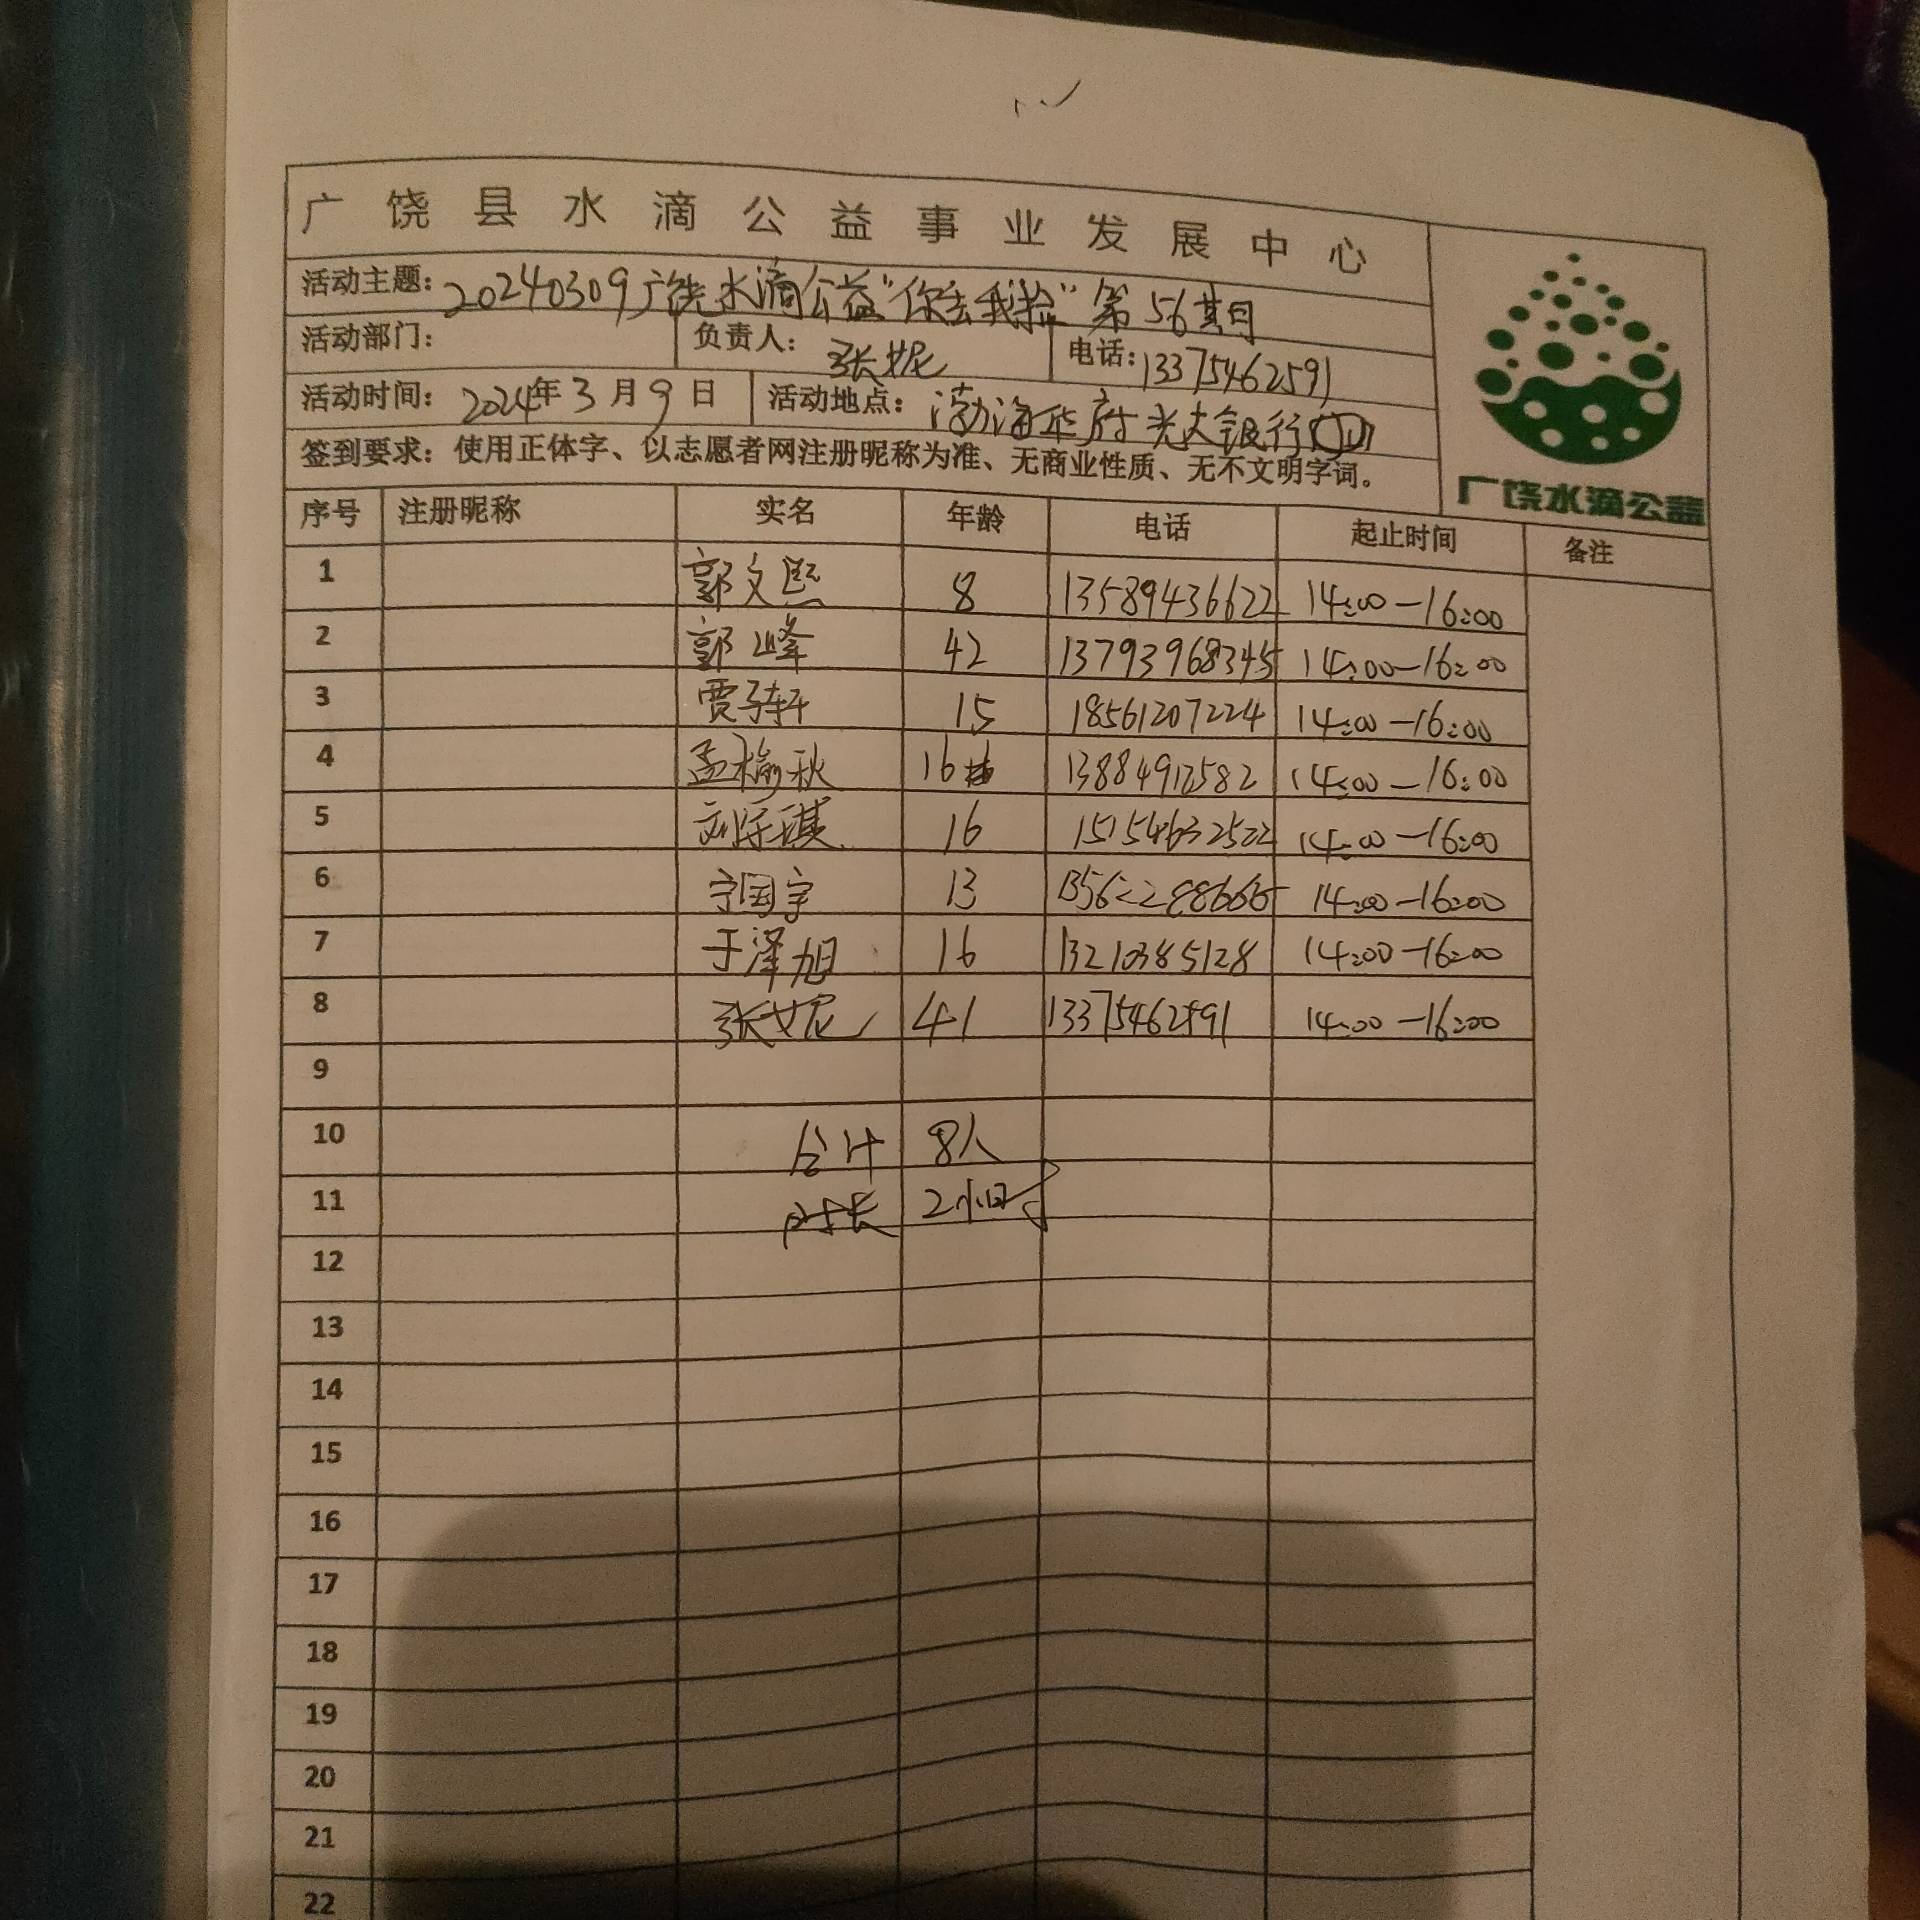 广饶县水滴公益事业发展中心
活动主题：20240309广饶水滴公益“你丢我捡”第56期
活动部门： 负责人：张妮 电话：13375462591
活动时间：2024年3月9日 活动地点：渤海华府光大银行
签到要求：使用正体字、以志愿者网注册昵称为准、无商业性质、无不文明字词。
广饶水滴公益
序号 注册昵称 实名 年龄 电话 起止时间 备注
1 郭文熙 8 13589436622 14:00-16:00
2 郭峰 42 13793968345 14:00-16:00
3 贾子轩 15 18561207224 14:00-16:00
4 孟榆秋 16 14:00-16:00
5 16 15154632522 14:00-16:00
6 宁国宇 13 14:00-16:00
7 于泽旭 16 13210385128 14:00-16:00
8 张妮 41 13375462591 14:00-16:00
9
10 合计 8人
11 时长 2小时
12
13
14
15
16
17
18
19
20
21
22